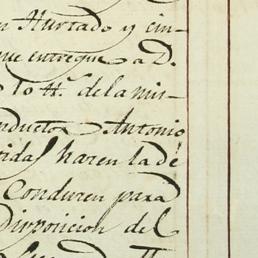 n Hurtado y cin-
que entregue a D.
to Hs. de la mis-
nducto Antonio
vidas haren la de
Conduren para
Disposicion del